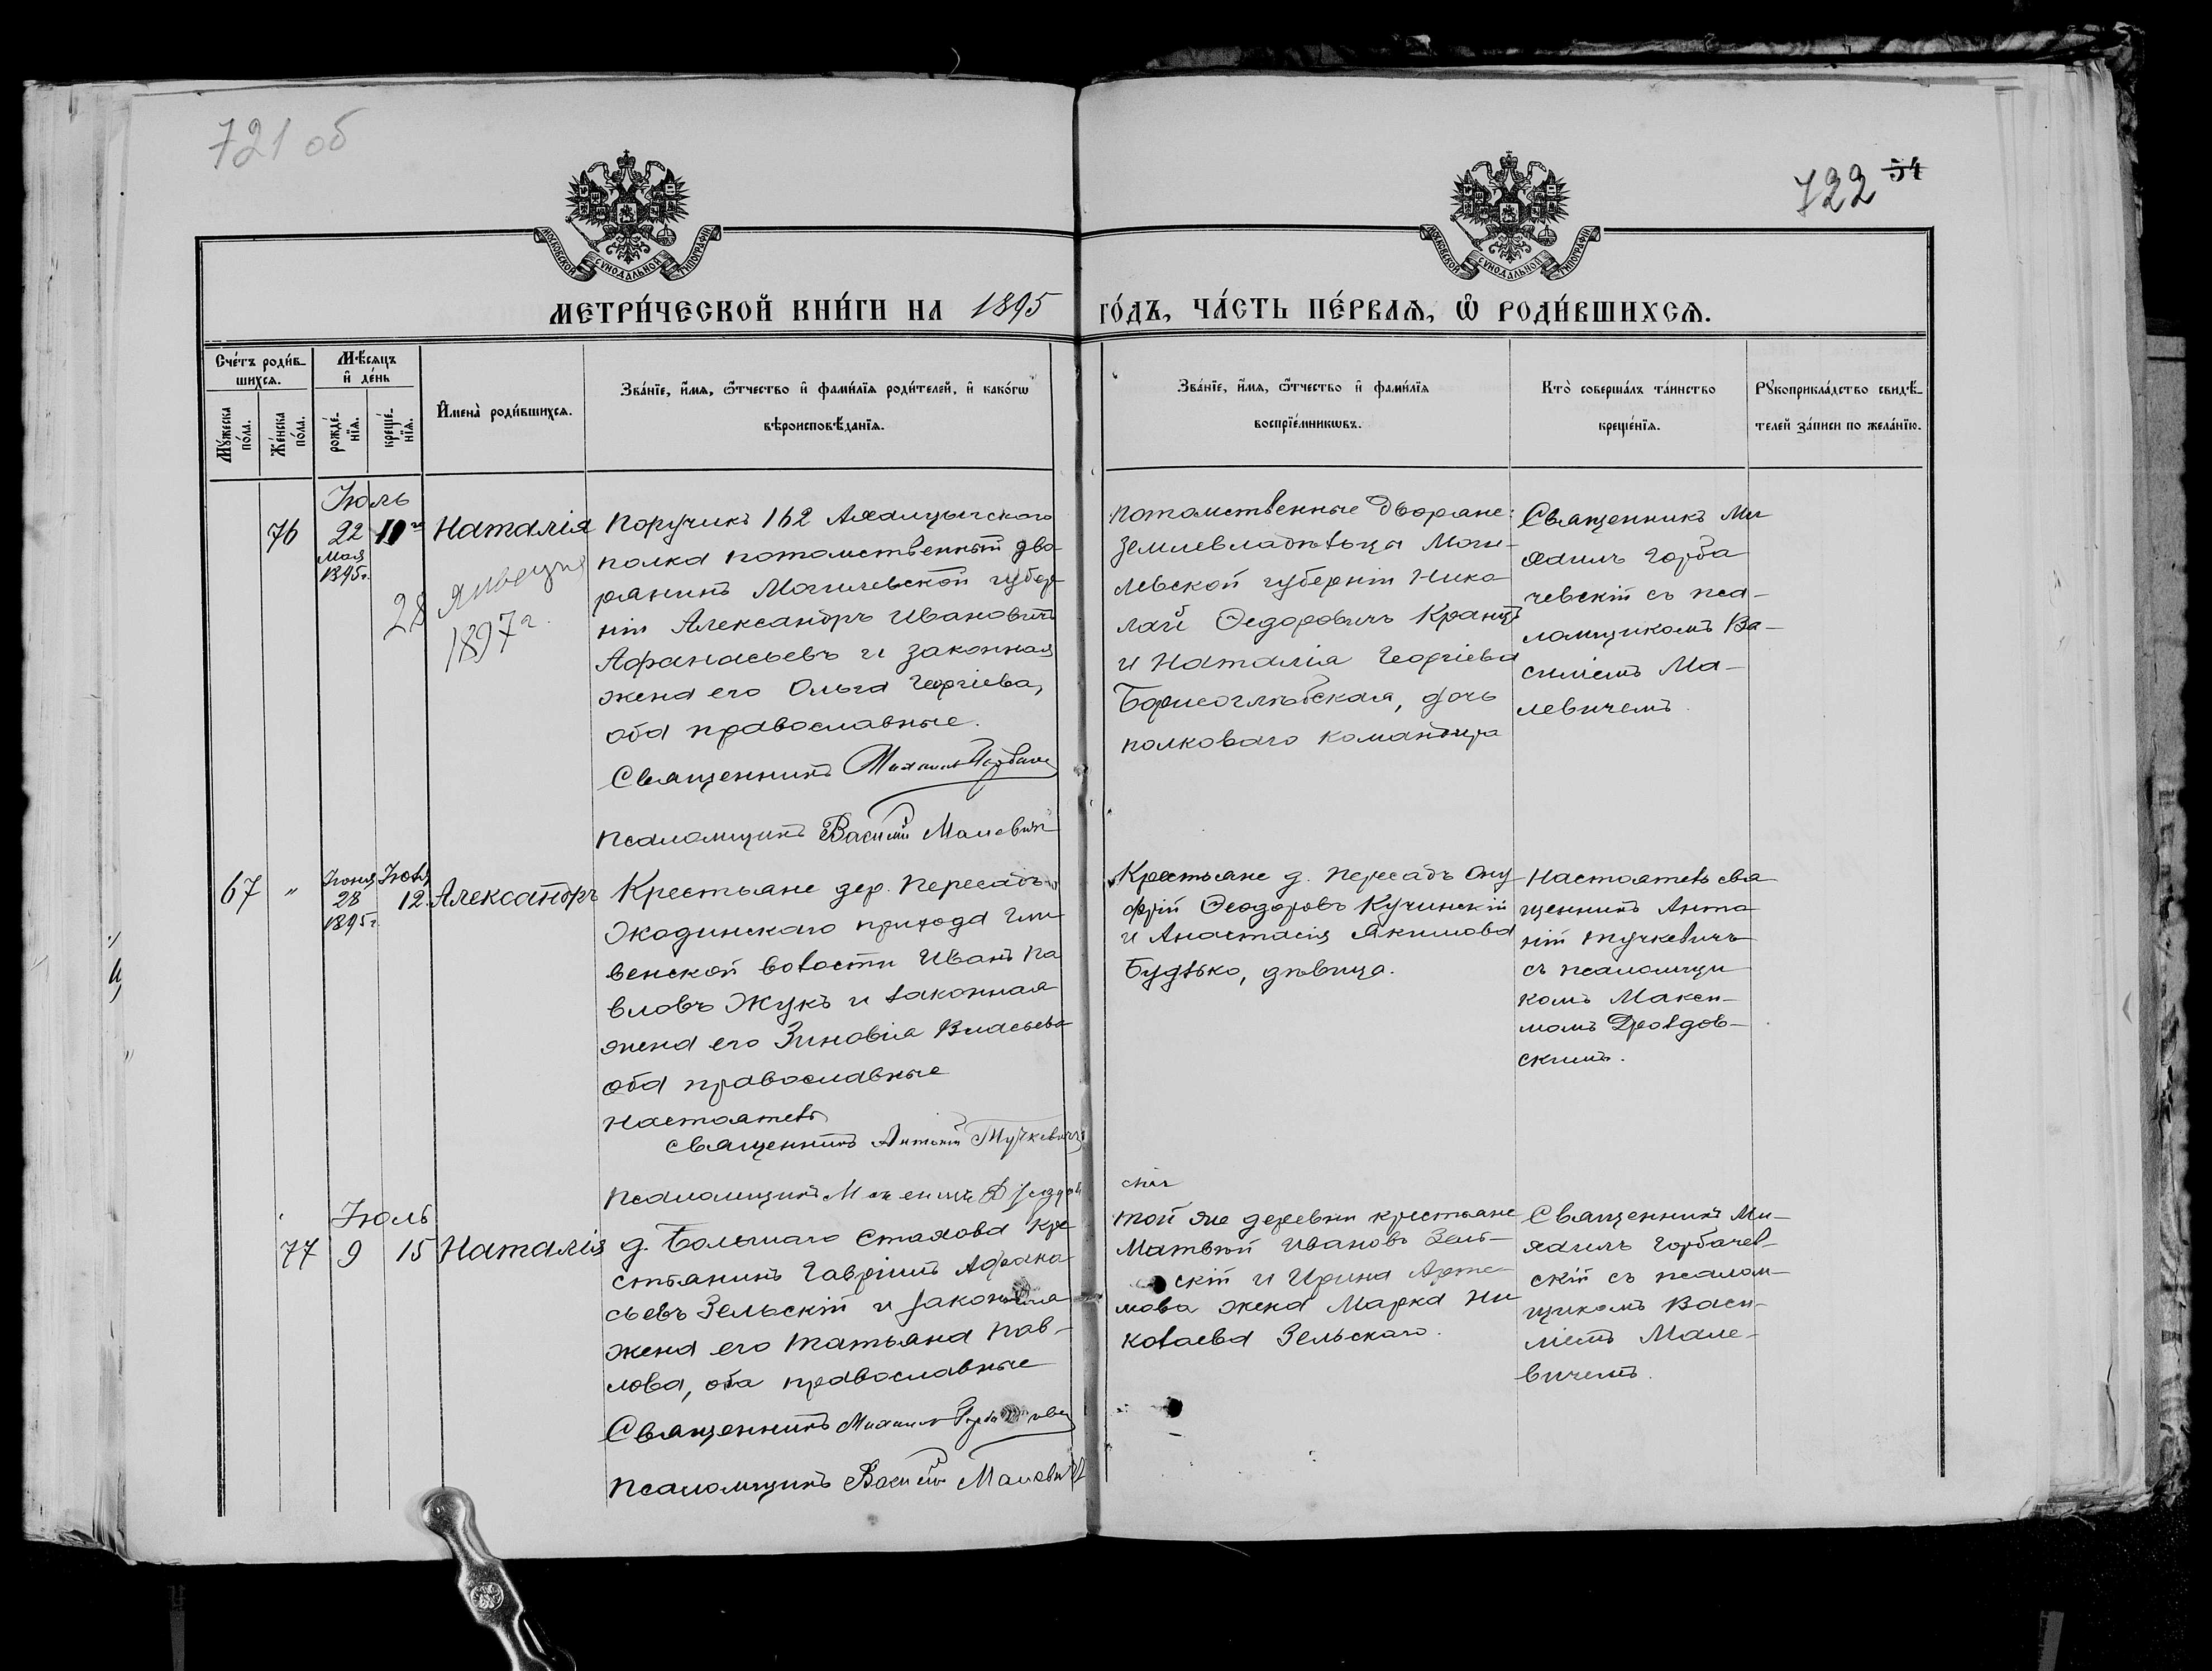 721 об
722 54
МОСКОВСКОЙ СѴНОДАЛЬНОЙ ТИПОГРАФІИ
МОСКОВСКОЙ СѴНОДАЛЬНОЙ ТИПОГРАФІИ
МЕТРИ́ЧЕСКОЙ КНИ́ГИ НА 1895 ГО́ДЪ, ЧА́СТЬ ПЕ́РВАѦ, Ѽ РОДИ́ВШИХСѦ.
Сче́тъ роди́в-
шихсѧ.
Мꙋжеска по́ла.
Же́нска по́ла.
Мѣ́сѧцъ
и҆ де́нь
рожде́-
нїѧ.
креще́-
нїѧ.
И҆мена̀ роди́вшихсѧ.
Зва́нїе, и҆́мѧ, ѻ҆́тчество и҆ фами́лїѧ роди́телей, и҆ како́гѡ
вѣроисповѣ́данїѧ.
Зва́нїе, и҆́мѧ, ѻ҆́тчество и҆ фами́лїѧ
воспрїе́мникѡвъ.
Кто̀ соверша́лъ та́инство
креще́нїѧ.
Рꙋкоприкла́дство свидѣ́-
телей за́писи по жела́нїю.
Іюль
76 22 10го Наталія
Мая
1895г.
28 января
1897г.
Поручикъ 162 Ахалцыхскаго
полка потомственный дво-
рянинъ Могилевской губер-
ніи Александръ Ивановичъ
Афанасьевъ и законная
жена его Ольга Георгіева,
оба православные.
Священникъ Михаилъ Горбаче
Псаломщикъ Василій Малевич
потомственные дворяне:
землевладѣльца Моги-
левской губерніи Нико
лай Ѳедоровичъ Кранцъ
и Наталія Георгіева
Борисоглѣбская, дочь
полковаго командира
Священникъ Ми
хаилъ Горба
чевскій съ пса-
ломщикомъ Ва-
силіемъ Ма-
левичемъ.
67 " Іюня Іюля Александръ
28 12
1895г.
Крестьяне дер. Пересадъ
Жодинскаго прихода Гли
венской волости Иванъ Па
вловъ Жукъ и законная
жена его Зиновія Власьева
оба православные
Настоятель
Священникъ Антоній Тучкевичъ
Псаломщикъ Максимъ Дроздов
скій
Крестьяне д. Пересадъ Ону
фрій Ѳеодоровъ Кучинскій
и Анастасія Якимова
Будько, дѣвица.
Настоятель свя
щенникъ Анто
ній Тучкевичъ
съ псаломщи
комъ Макси-
момъ Дроздов-
скимъ.
Іюль
77 9 15 Наталія
д. Большаго Стахова кре
стьянинъ Гавріилъ Афана
сьевъ Зельскій и законная
жена его Татьяна Пав-
лова, оба православные
Священникъ Михаилъ Горбачевс
Псаломщикъ Василій Малевич
той же деревни крестьяне
Матвѣй Ивановъ Зель-
скій и Ирина Арте-
мова жена Марка Ни
колаева Зельскаго.
Священникъ Ми-
хаилъ Горбачев-
скій съ псалом-
щикомъ Васи-
ліемъ Мале-
вичемъ.